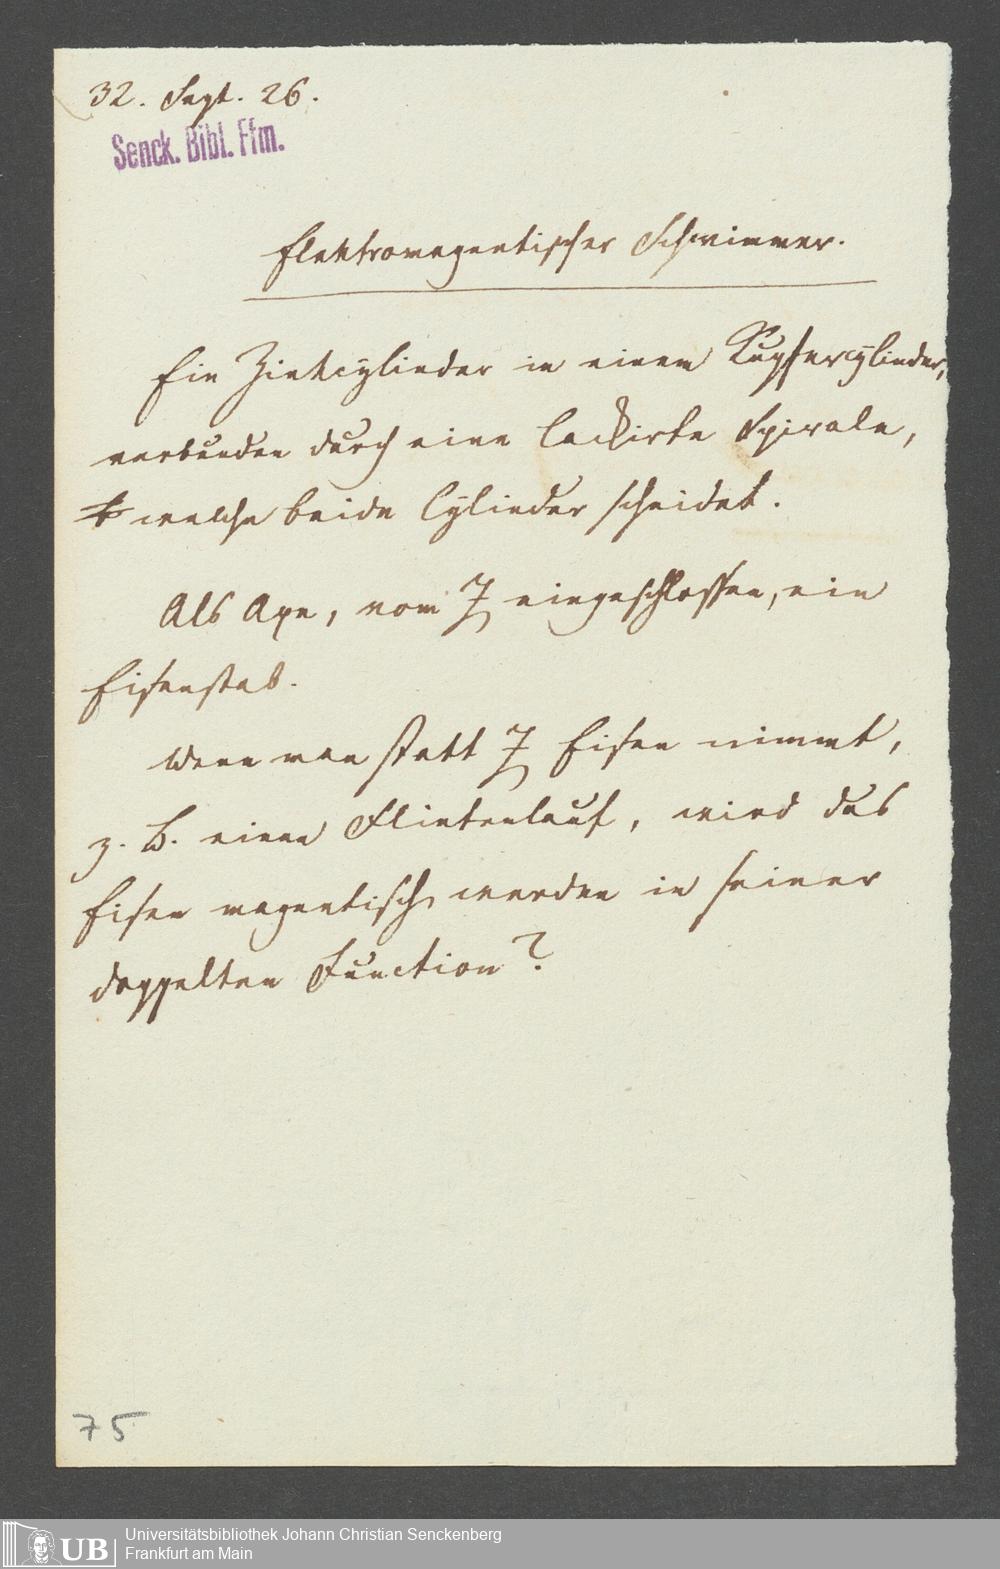 32. Sept. 26.
Senck. Bibl. Ffm.
Elektromagnetischer Schwimmer.
Ein Zinkcylinder in einem Kupfercylinder,
verbunden durch eine lackirte Spirale,
welche beide Cylinder scheidet.
Als Axe, vom Z eingeschlossen, ein
Eisenstab.
Wenn man statt Z Eisen nimmt,
z. B. einen Flintenlauf, wird das
Eisen magnetisch werden in seiner
doppelten Function?
75
UB
Universitätsbibliothek Johann Christian Senckenberg
Frankfurt am Main